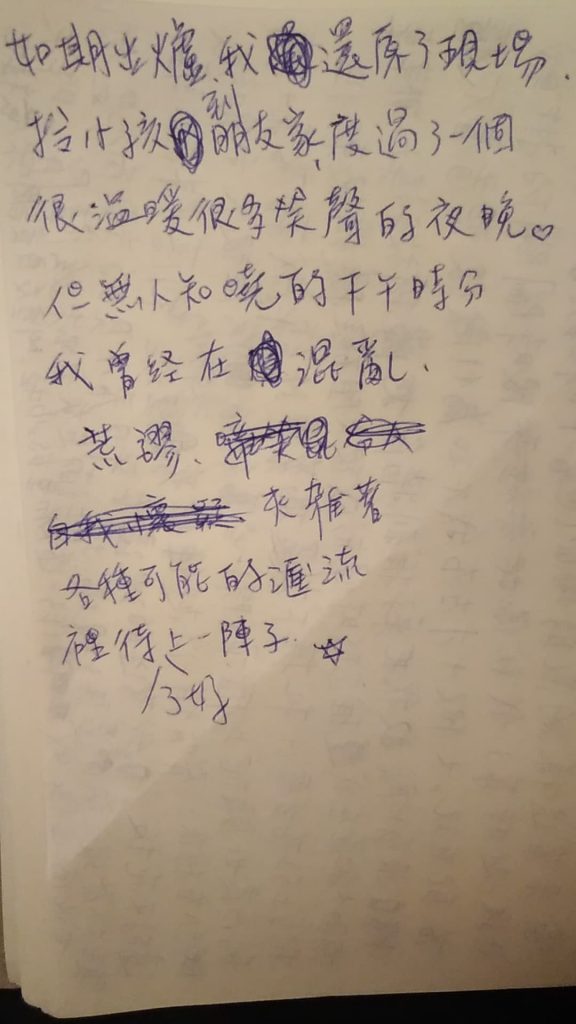 如期出爐、我還原了現場.
拾小孩到朋友家,度過了一個
很溫暖很多笑聲的夜晚。♡
但無人知曉的下午時分
我曾经在混亂、
荒謬、
夾雜著
各種可能的匯流
裡待上一陣子. ☆